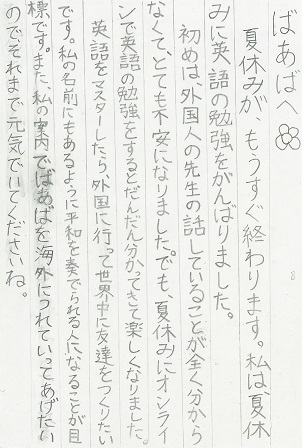 ばあばへ
夏休みが、もうすぐ終わります。私は、夏休
みに英語の勉強をがんばりました。
初めは、外国人の先生の話していることが全く分から
なくて、とても不安になりました。でも、夏休みにオンライ
ンで英語の勉強をするとだんだん分かってきて楽しくなりました。
英語をマスターしたら、外国に行って世界中に友達をつくりたい
です。私の名前にもあるように平和を奏でられる人になることが目
標です。また、私の案内でばあばを海外につれていってあげたい
のでそれまで元気でいてくださいね。